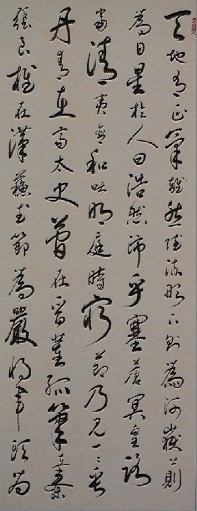 天地有正氣雜然賦流形下則為河嶽上則
為日星於人曰浩然沛乎塞蒼冥皇路
當清夷含和吐明庭時窮節乃見一一垂
丹青在齊太史簡在晉董狐筆在秦
張良椎在漢蘇武節為嚴將軍頭為